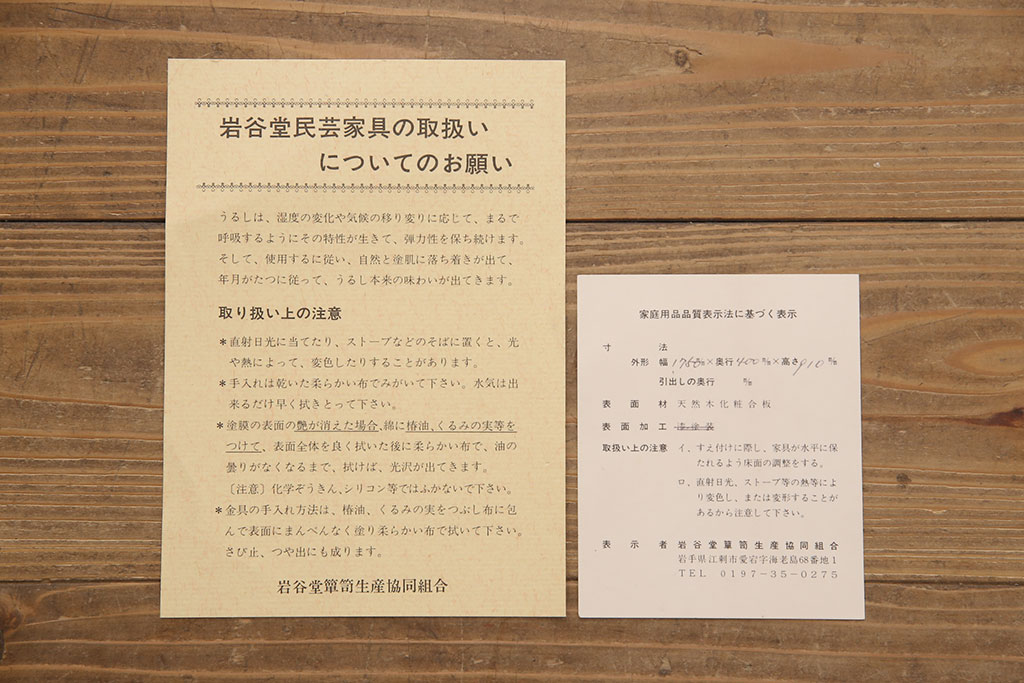 岩谷堂民芸家具の取扱い
についてのお願い
うるしは、湿度の変化や気候の移り変りに応じて、まるで
呼吸するようにその特性が生きて、弾力性を保ち続けます。
そして、使用するに従い、自然と塗肌に落ち着きが出て、
年月がたつに従って、うるし本来の味わいが出てきます。
取り扱い上の注意
*直射日光に当てたり、ストーブなどのそばに置くと、光
や熱によって、変色したりすることがあります。
*手入れは乾いた柔らかい布でみがいて下さい。水気は出
来るだけ早く拭きとって下さい。
*塗膜の表面の艶が消えた場合、綿に椿油、くるみの実等を
つけて、表面全体を良く拭いた後に柔らかい布で、油の
曇りがなくなるまで、拭けば、光沢が出てきます。
〔注意〕化学ぞうきん、シリコン等ではふかないで下さい。
*金具の手入れ方法は、椿油、くるみの実をつぶし布に包
んで表面にまんべんなく塗り柔らかい布で拭いて下さい。
さび止、つや出にも成ります。
岩谷堂簞笥生産協同組合
家庭用品品質表示法に基づく表示
寸法
外形 幅1760㎜×奥行400㎜×高さ910㎜
引出しの奥行 ㎜
表面材 天然木化粧合板
表面加工 漆塗装
取扱い上の注意 イ、すえ付けに際し、家具が水平に保
たれるよう床面の調整をする。
ロ、直射日光、ストーブ等の熱等によ
り変色し、または変形することが
あるから注意して下さい。
表示者 岩谷堂簞笥生産協同組合
岩手県江刺市愛宕字海老島68番地1
TEL 0197-35-0275